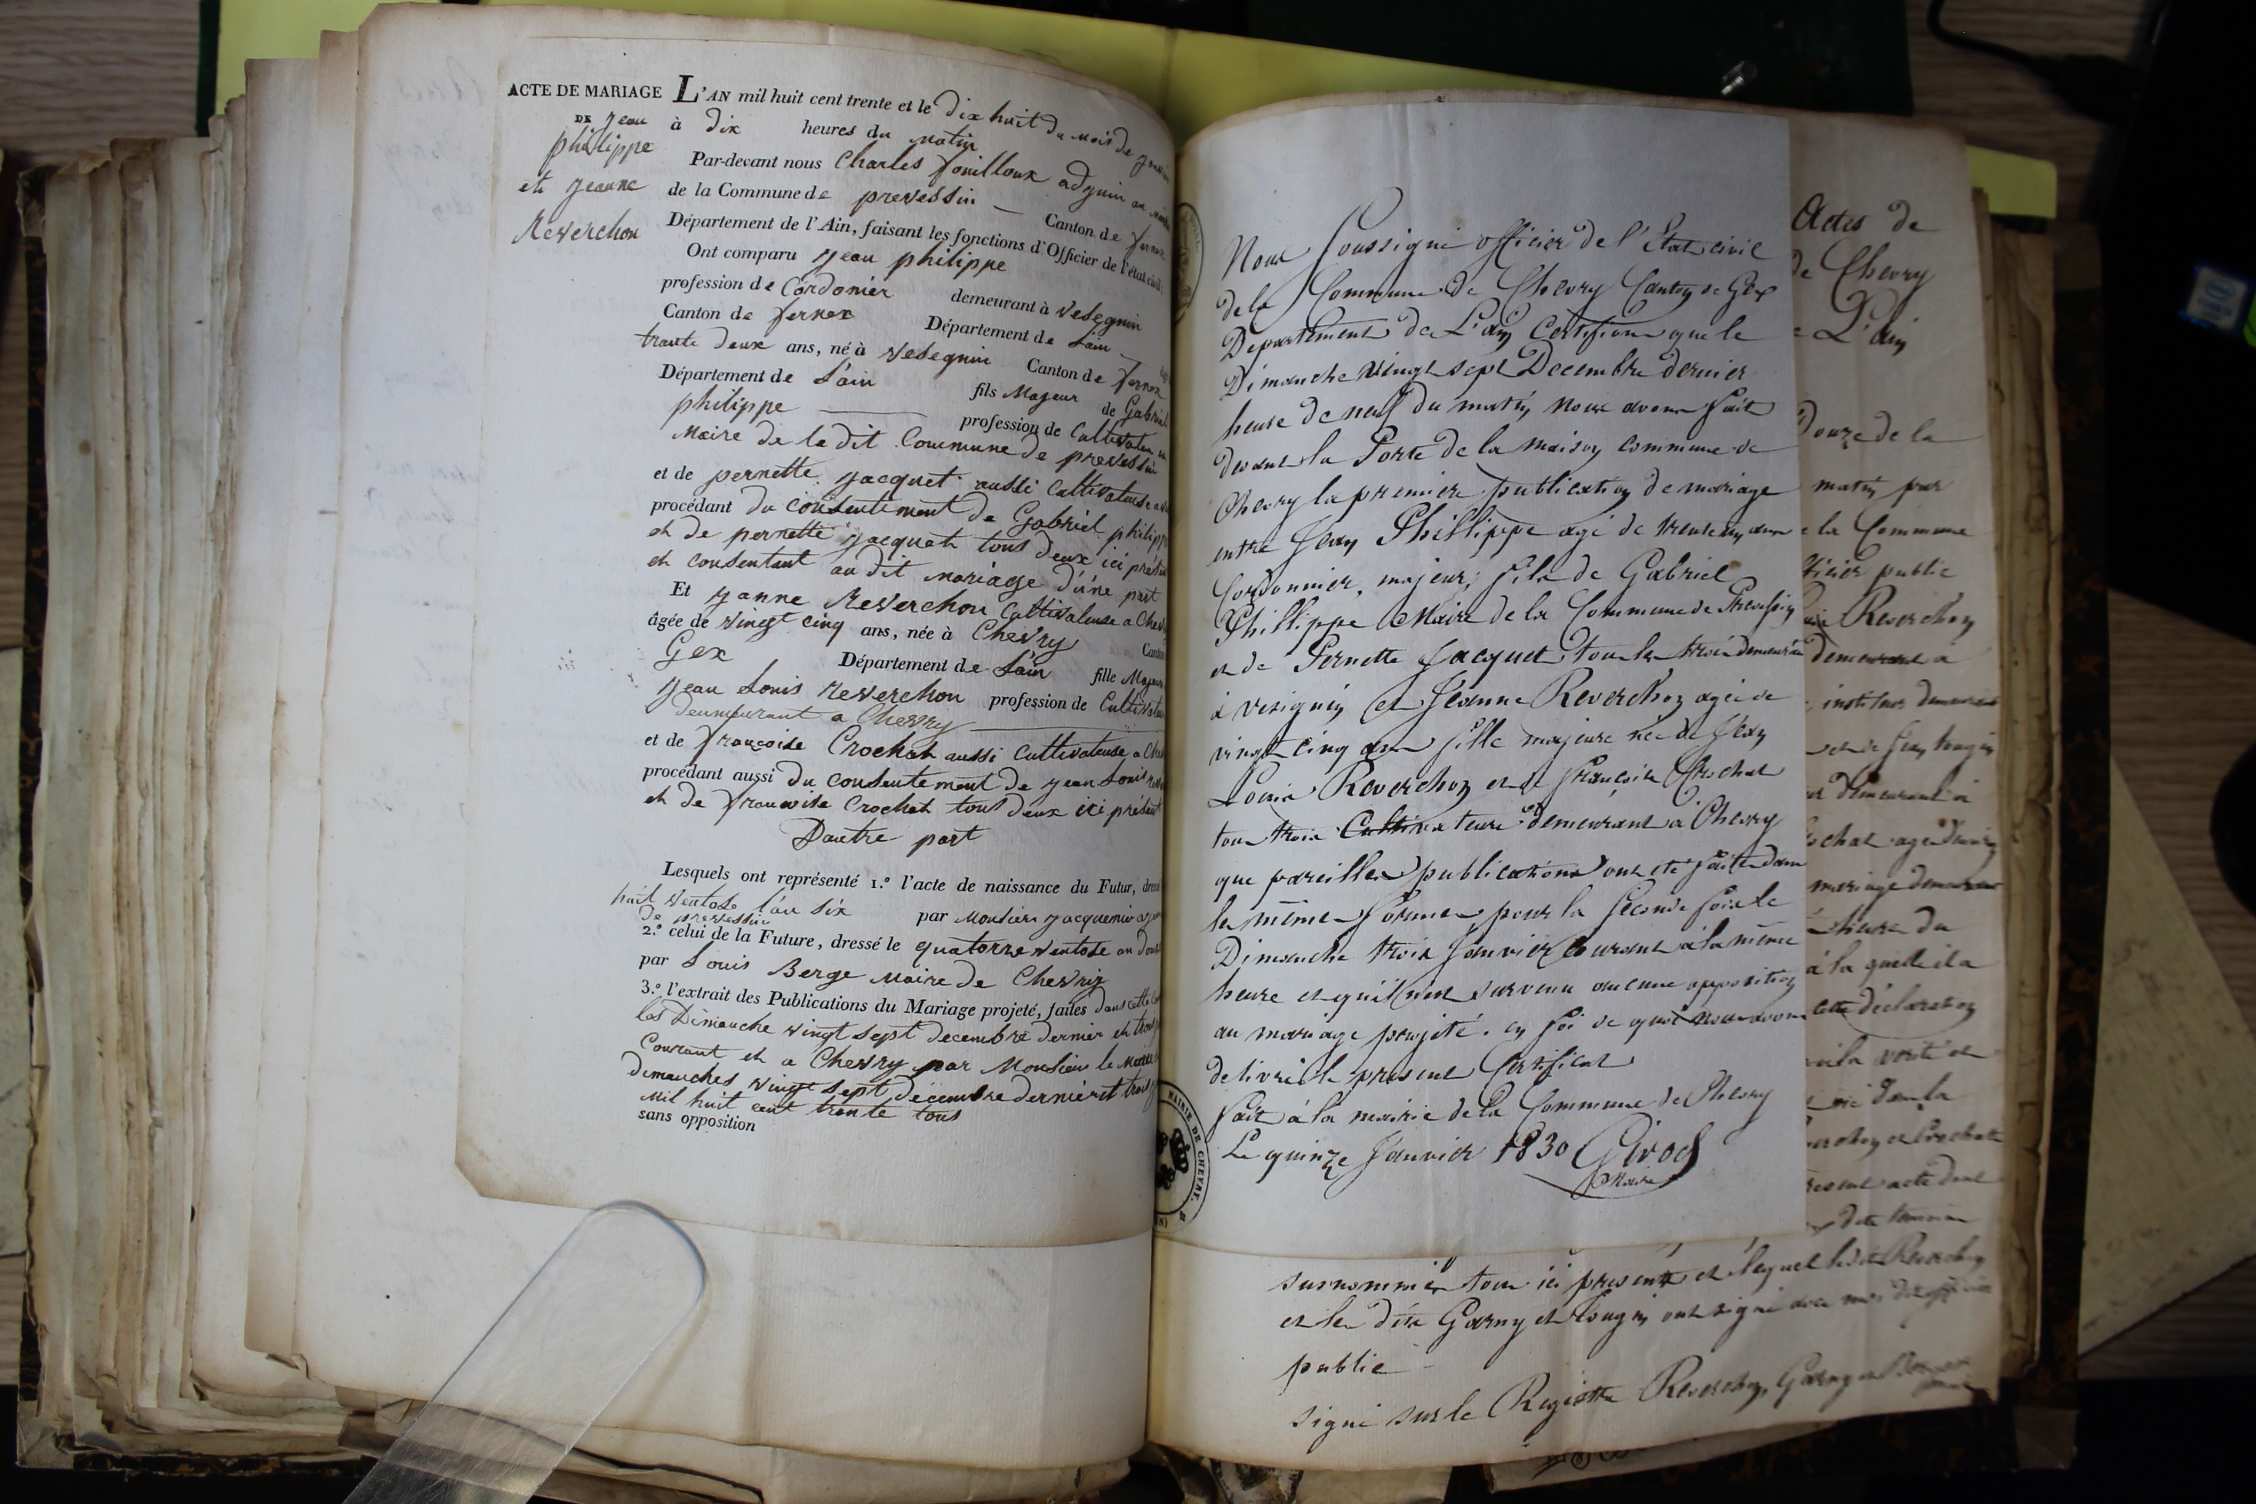 ACTE DE MARIAGE
DE Jean
philippe
et Jeanne
Reverchon
L'AN mil huit cent trente et le dix huit du mois de
à dix heures du matin
Par-devant nous Charles fouilloux adjoin au
de la Commune de prevessin — Canton de fernex
Département de l'Ain, faisant les fonctions d'Officier de l'état civil:
Ont comparu Jean philippe
profession de Cordonier demeurant à Vesegnin
Canton de fernex Département de Lain
trante deux ans, né à Vesegnin Canton de fernex
Département de L'ain fils Majeur de Gabriel
philippe — profession de Cultivateur
Maire de la dit Commune de prevessin
et de pernette Jacquet aussi Cultivateuse
procédant du consentement de Gabriel philippe
et de pernette jacquet tous deux ici présent
et consentant au dit mariage d'une part
Et Janne Reverchon Cultivateuse a Chevry
âgée de vingt cinq ans, née à Chevry Canton
Gex Département de Lain fille Majeure
Jean Louis Reverchon profession de Cultivateur
demeurant a Chevry
et de françoise Crochat aussi cultivateuse a
procédant aussi du consentement de Jean Louis
et de francoise Crochat tous deux ici présent
Dautre part
Lesquels ont représenté 1.º l'acte de naissance du Futur, dressé
huit ventose l'an six par Monsieur jacquemier
de prevessin
2.º celui de la Future, dressé le quatorze ventose an
par Louis Berge Maire de Chevry
3.º l'extrait des Publications du Mariage projeté, faites dans cette
les Dimanche vingt sept decembre dernier et trois
Courant et a Chevry par Monsieur le Maire
dimanches vingt sept décembre dernier et trois
mil huit cent trente tous
sans opposition
Nous soussigné officier de l'Etat civil
de la Commune de Chevry Canton de Gex
Departement de L'ain Certifions que le
Dimanche vingt sept Decembre dernier
heure de neuf du matin nous avons fait
devant la Porte de la maison commune de
Chevry la premiere publication de mariage
entre Jean Phillippe agé de trente un ans
Cordonnier, majeur, fils de Gabriel
Phillippe Maire de la Commune de Prevessin
et de Pernette Jacquet tous les trois demeurant
à vesignin et Jeanne Reverchon agée de
vingt cinq ans fille majeure née de Jean
Louis Reverchon et de françoise Crochat
tous trois Cultivateurs demeurant à Chevry
que pareilles publications ont été faites dans
la même forme pour la seconde fois le
Dimanche trois Janvier courant à la même
heure et qu'il n'est survenu aucune opposition
au mariage projeté. en foi de quoi nous avons
délivré le present Certificat
fait à la mairie de la Commune de Chevry
Le quinze Janvier 1830 Girod
Maire
MAIRIE DE CHEVRY
Actes de
de Chevry
L'ain
Douze de la
matin par
la Commune
officier public
Reverchon
demeurant à
instituteur demeurant
demeurant à
mariage demeurant
heure du
à la quelle il a
cette déclaration
Reverchon et Crochat
present acte dont
surnommés tous ici présents et lequel ledit Reverchon
et les dits Garny et Hugin ont signé avec moi dit officier
public
signé sur le Registre Reverchon, Garny